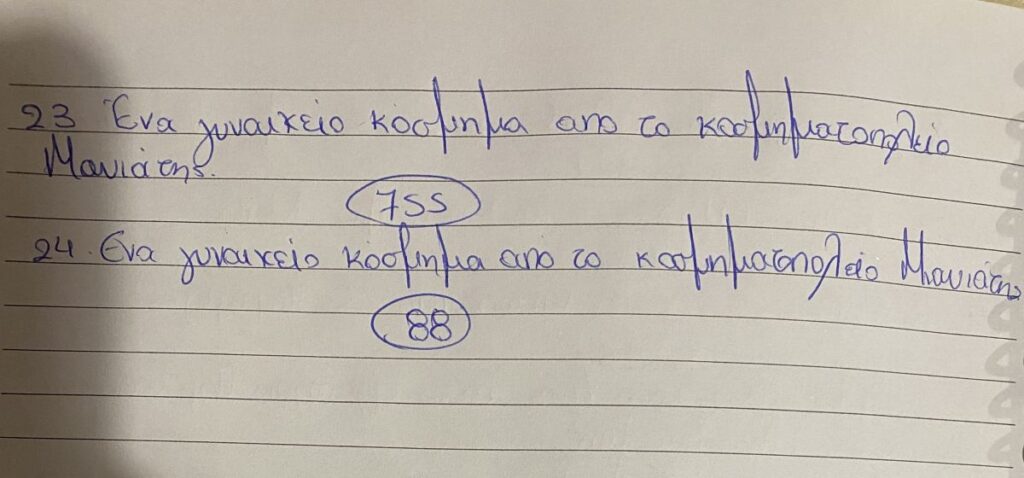 23 Ένα γυναικείο κόσμημα απο το κοσμηματοπωλείο
Μανιάτης.
755
24. Ενα γυναικείο κόσμημα από το κοσμηματοπωλείο Μανιάτης
88